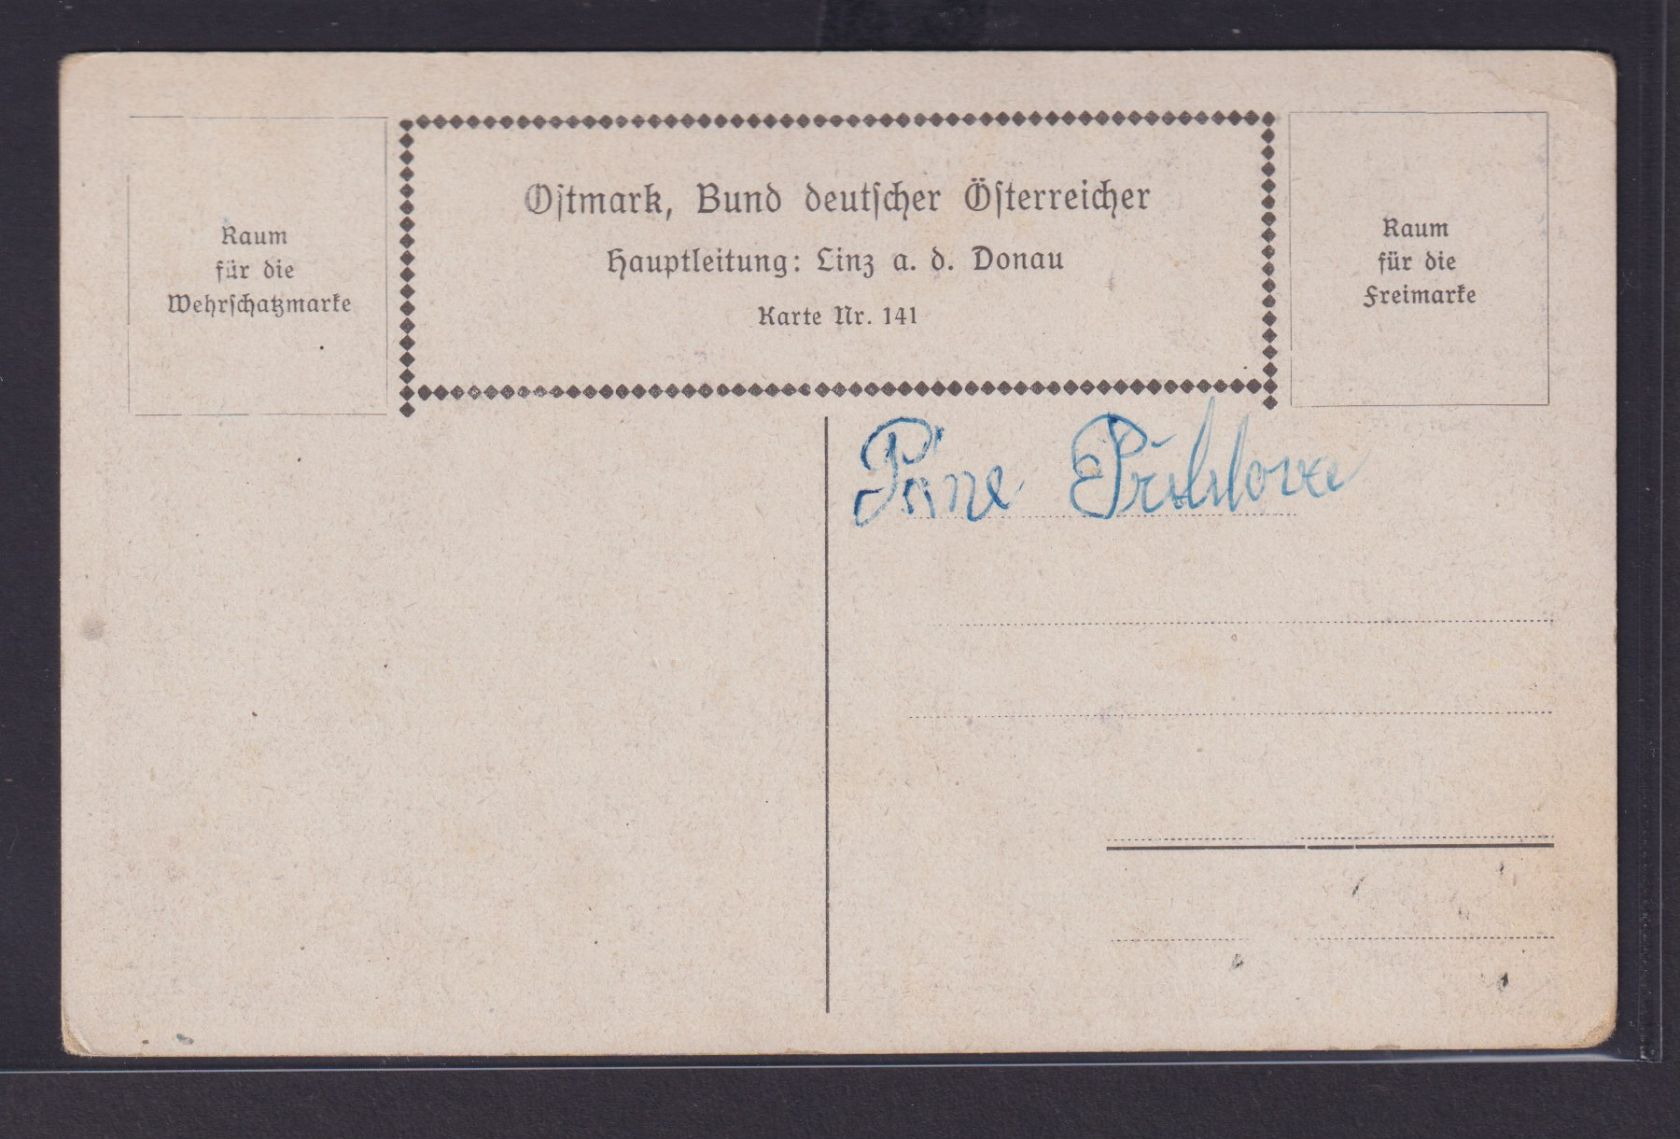 Raum
für die
Wehrschatzmarke
Ostmark, Bund deutscher Österreicher
Hauptleitung: Linz a. d. Donau
Karte Nr. 141
Raum
für die
Freimarke